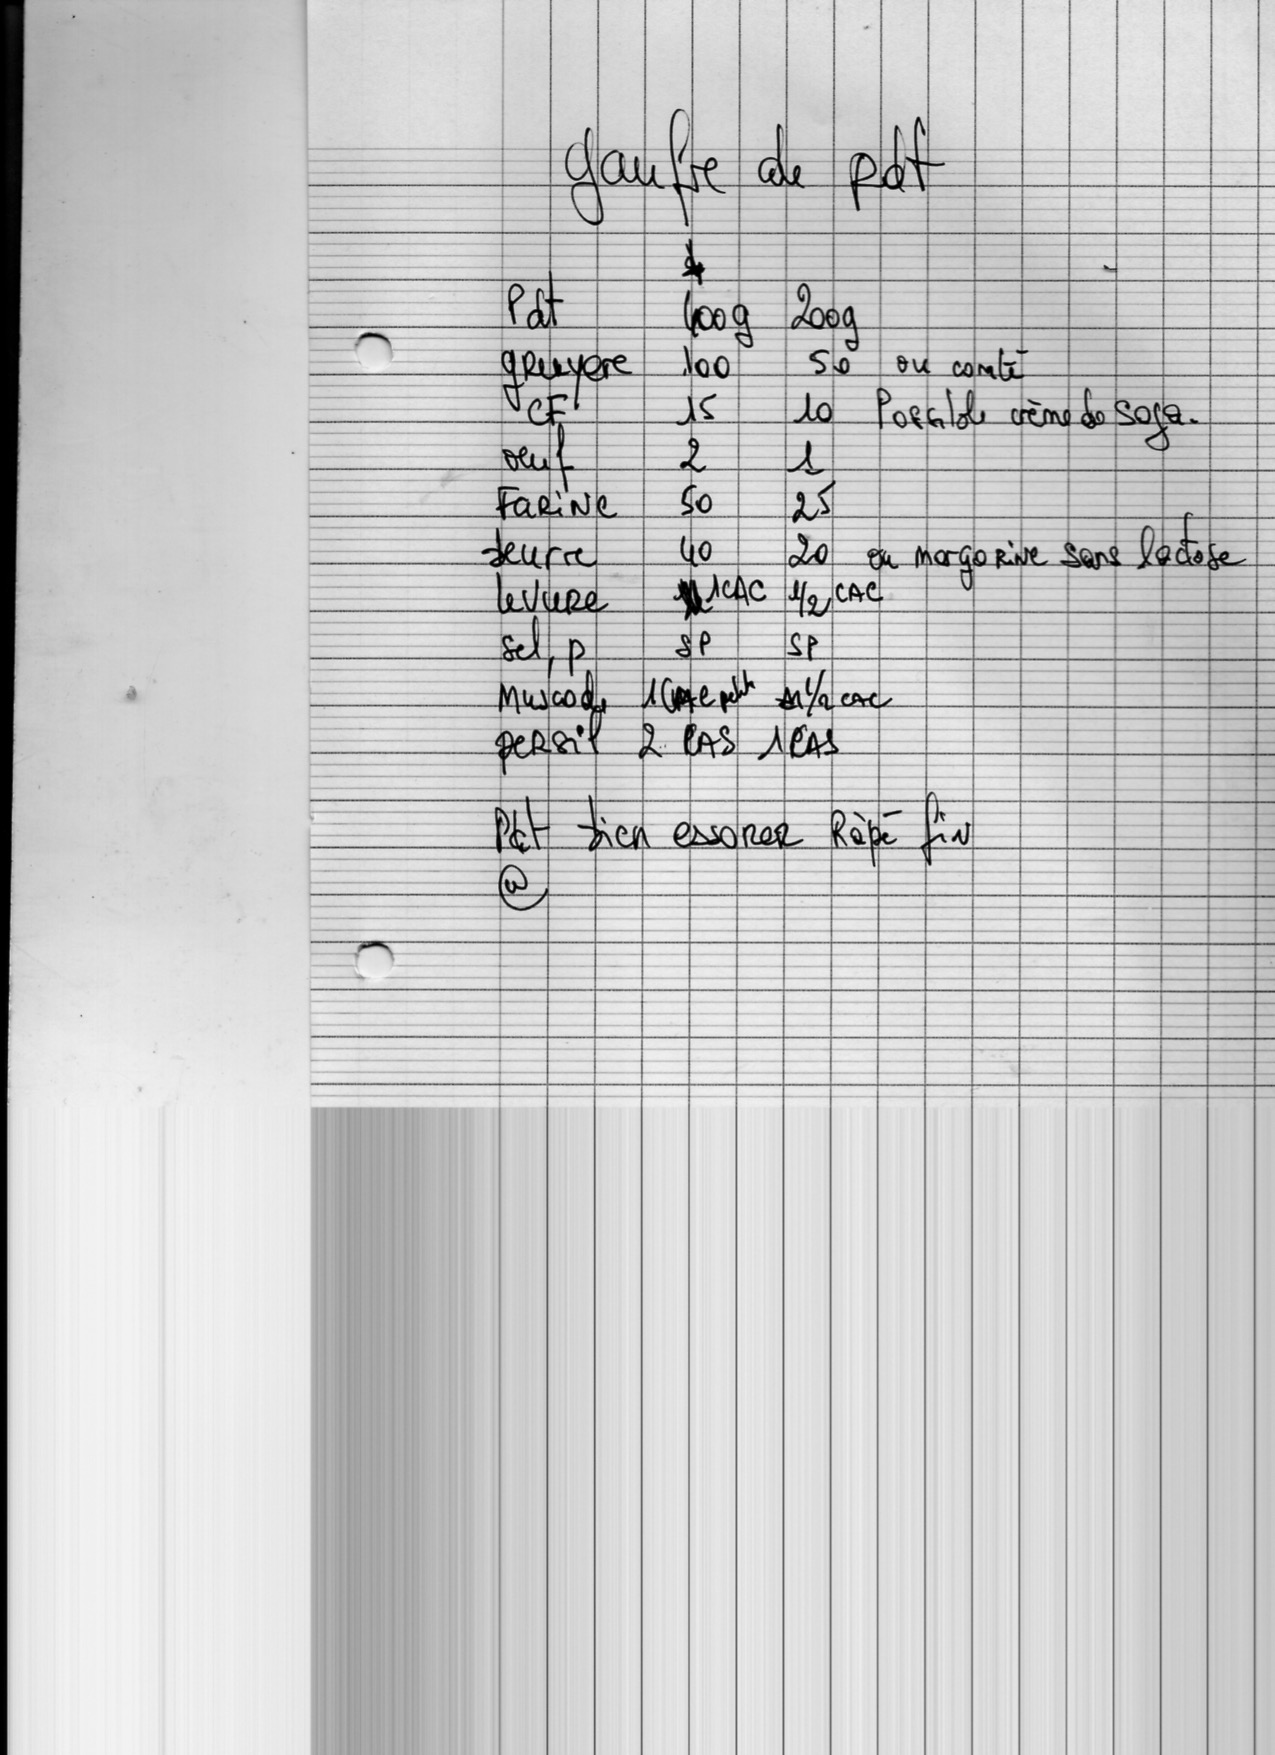 gaufre de pdt
Pdt 400g 200g
gruyere 100 50 ou comté
CF 15 10 Possible crème de soja.
oeuf 2 1
FARINE 50 25
beurre 40 20 ou margarine sans lactose
levure 1CAC 1/2 CAC
sel, p SP SP
Muscade 1 CAC petite 1/2 CAC
persil 2 CAS 1 CAS
Pdt bien essorer Râpé fin